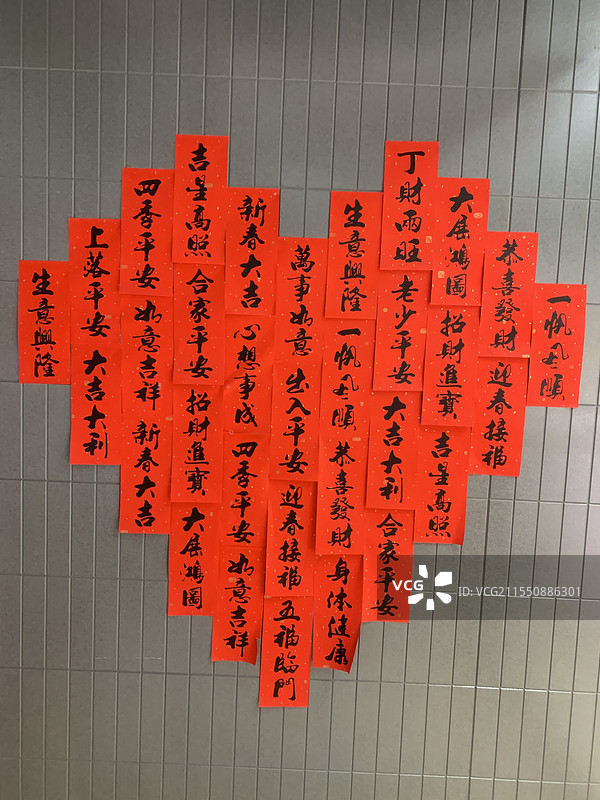 生意興隆
上落平安
大吉大利
四季平安
如意吉祥
新春大吉
吉星高照
合家平安
招財進寶
大展鴻圖
新春大吉
心想事成
四季平安
如意吉祥
萬事如意
出入平安
迎春接福
五福臨門
生意興隆
一帆風順
恭喜發財
身体健康
丁財兩旺
老少平安
大吉大利
合家平安
大展鴻圖
招財進寶
吉星高照
恭喜發財
迎春接福
一帆風順
VCG
ID:VCG211550886301